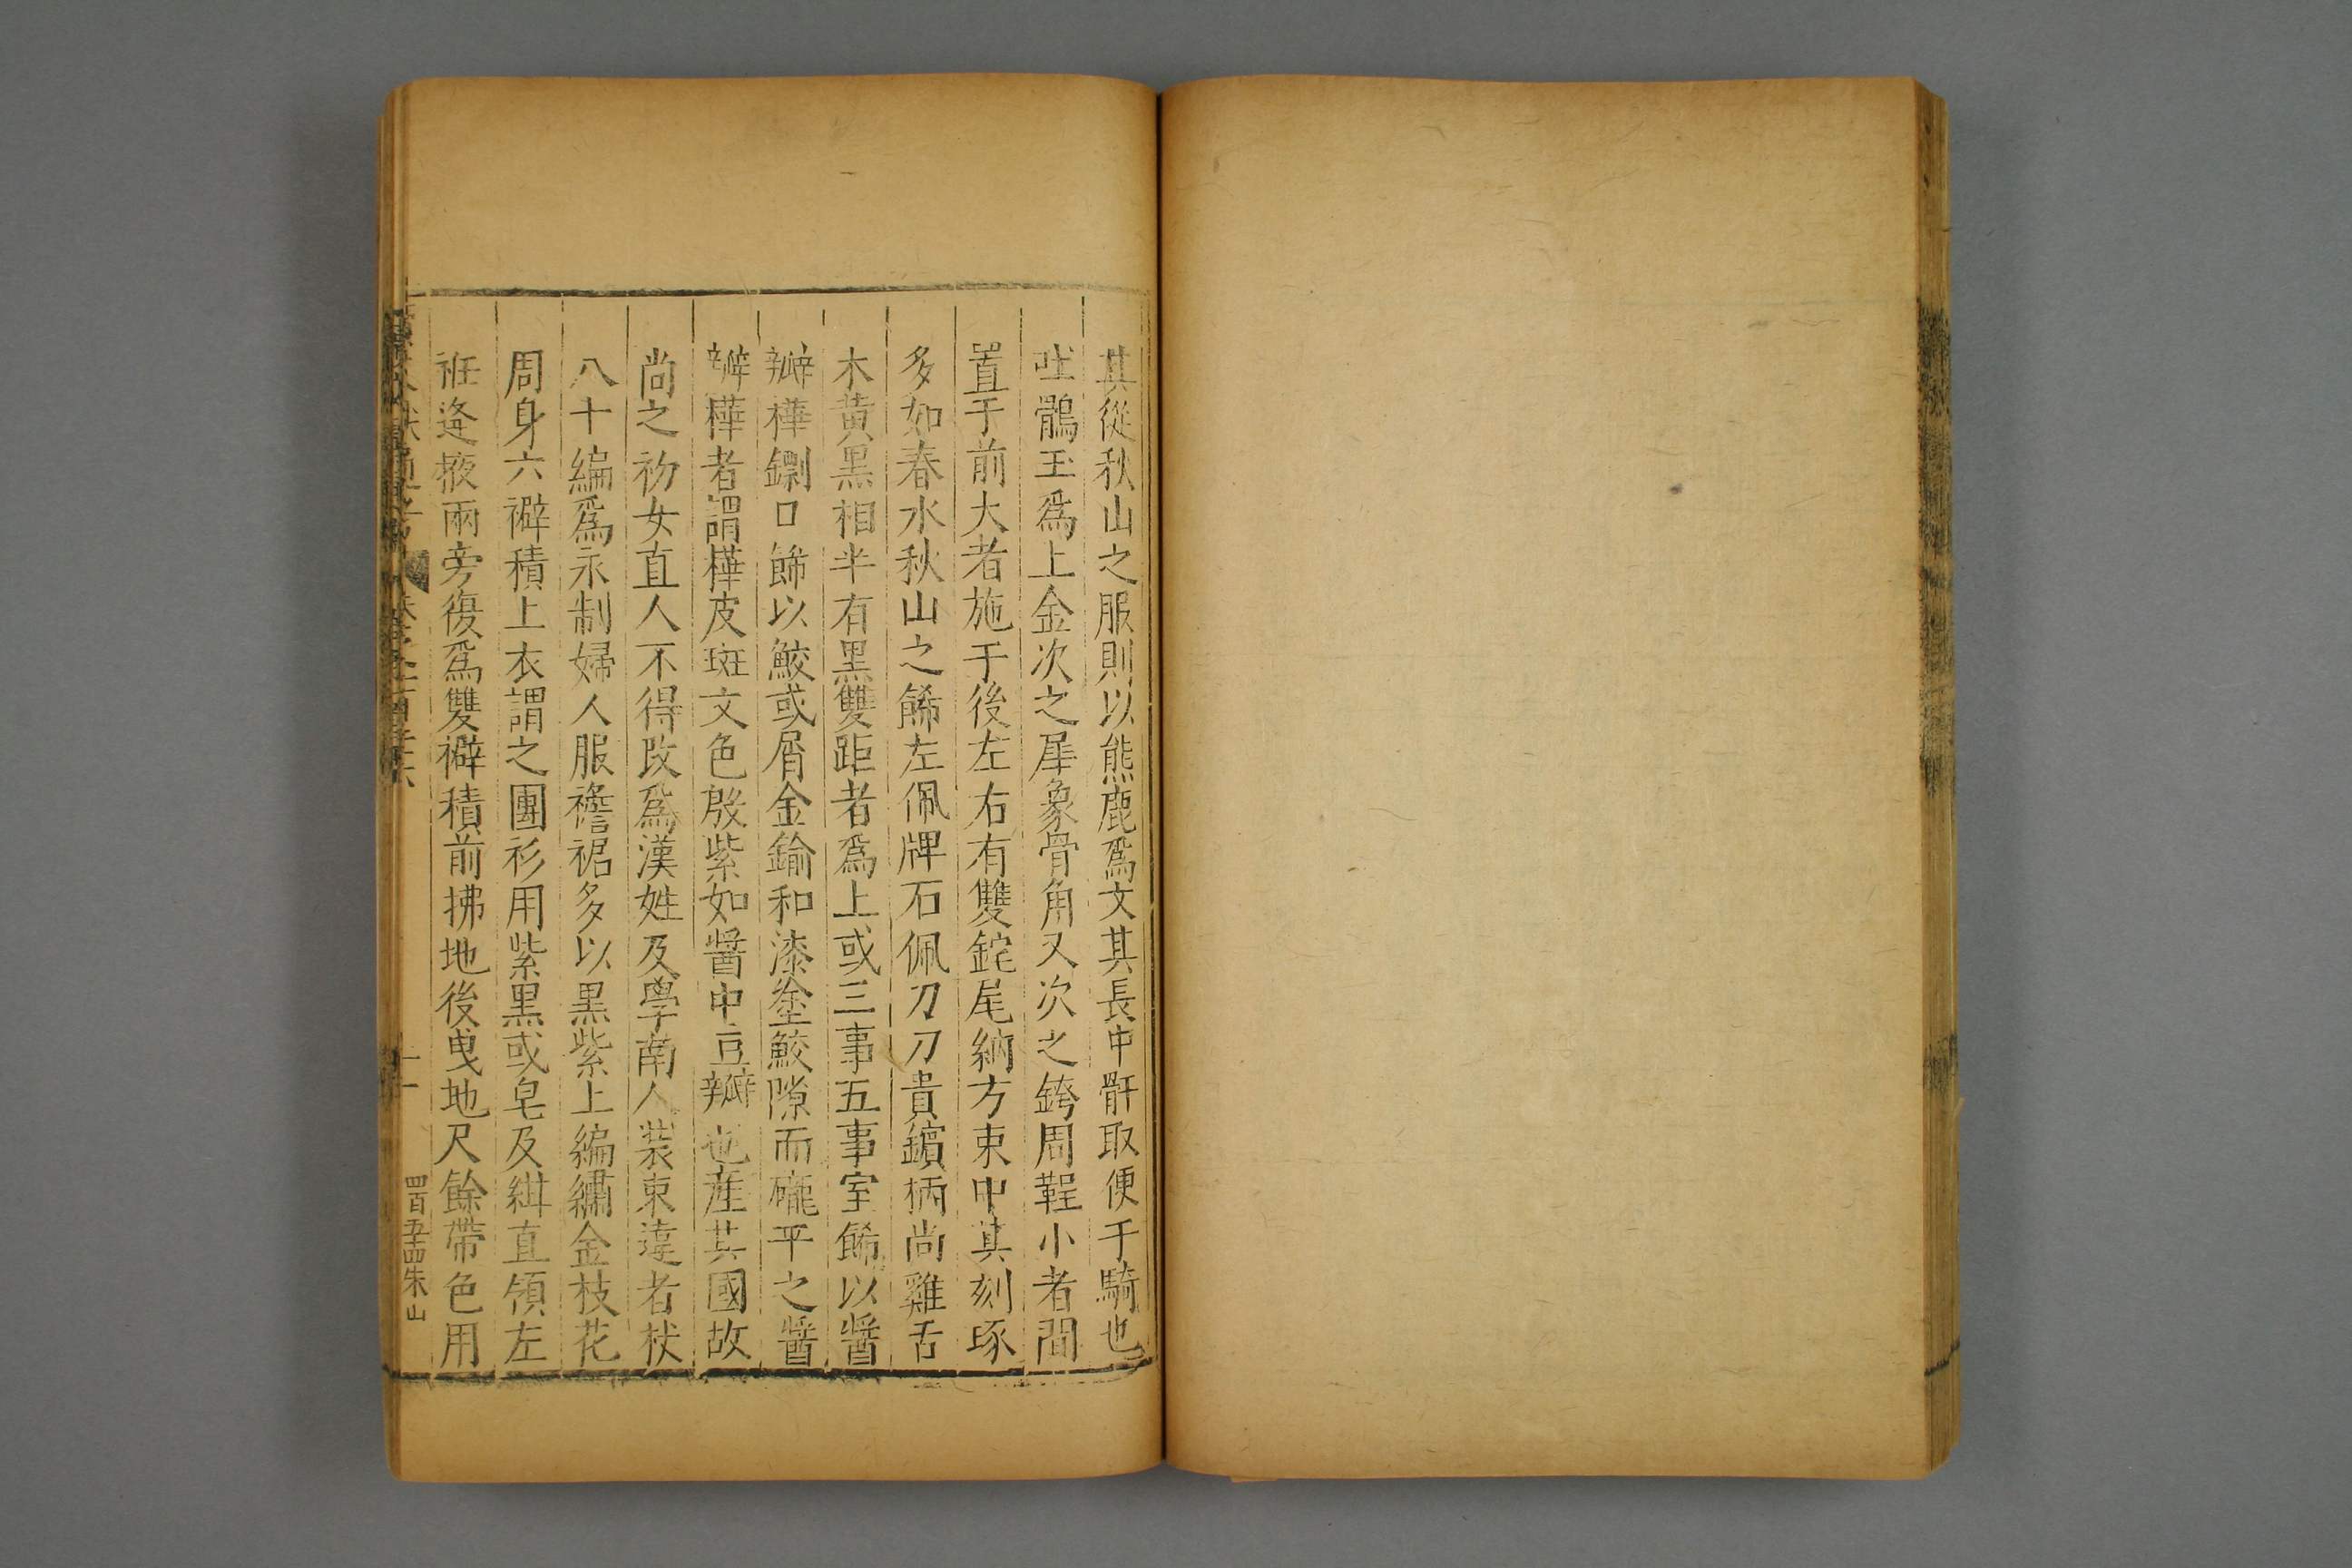 其從秋山之服則以熊鹿爲文其長中骭取便于騎也
吐鶻玉爲上金次之犀象骨角又次之銙周鞓小者間
置于前大者施于後左右有雙䤩尾納方束中其刻琢
多如春水秋山之餙左佩牌右佩刀刀貴鑌柄尚雞舌
木黃黑相半有黑雙距者爲上或三事五事室餙以醬
瓣樺鏢口餙以鮫或屑金鍮和漆塗鮫隙而礲平之醬
瓣樺者謂樺皮斑文色殷紫如醬中豆瓣也產其國故
尚之初女直人不得改爲漢姓及學南人裝束違者杖
八十編爲永制婦人服襜裙多以黑紫上編繡金枝花
周身六襞積上衣謂之團衫用紫黑或皂及紺直領左
衽逄掖兩旁復爲雙襞積前拂地後曳地尺餘帶色用
四百五十四朱山